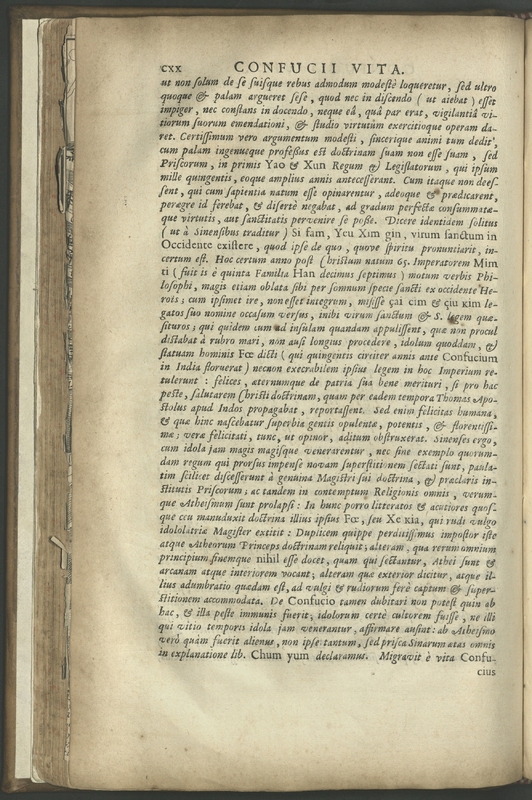 cxx CONFUCII VITA.
ut non solum de se suisque rebus admodum modestè loqueretur, sed ultro
quoque & palam argueret sese, quod nec in discendo (ut aiebat) esset
impiger, nec constans in docendo, neque eâ, quâ par erat, vigilantiâ vi-
tiorum suorum emendationi, & studio virtutum exercitioque operam da-
ret. Certissimum vero argumentum modesti, sincerique animi tum dedit,
cum palam ingenueque professus est doctrinam suam non esse suam, sed
Priscorum, in primis Yao & Xun Regum & Legislatorum, qui ipsum
mille quingentis, eoque amplius annis antecesserant. Cum itaque non dees-
sent, qui cum sapientia natum esse opinarentur, adeoque & prædicarent,
peragre id ferebat, & disertè negabat, ad gradum perfectæ consummatæ-
que virtutis, aut sanctitatis pervenire se posse. Dicere identidem solitus
(ut à Sinensibus traditur) Si fam, Yeu Xim gin, virum sanctum in
Occidente existere, quod ipse de quo, quove spiritu pronuntiarit, in-
certum est. Hoc certum anno post Christum natum 65. Imperatorem Mim
ti (fuit is è quinta Familia Han decimus septimus) motum verbis Phi-
losophi, magis etiam oblata sibi per somnum specie sancti ex occidente He-
rois; cum ipsimet ire, non esset integrum, misisse çai cim & çiu kim le-
gatos suo nomine occasum versus, inibi virum sanctum & S. legem quæ-
situros; qui quidem cum ad insulam quandam appulissent, quæ non procul
distabat à rubro mari, non ausi longius procedere, idolum quoddam, &
statuam hominis Foe dicti (qui quingentis circiter annis ante Confucium
in India floruerat) necnon execrabilem ipsius legem in hoc Imperium re-
tulerunt: felices, æternumque de patria sua bene merituri, si pro hac
peste, salutarem Christi doctrinam, quam per eadem tempora Thomas Apo-
stolus apud Indos propagabat, reportassent. Sed enim felicitas humana,
& quæ hinc nascebatur superbia gentis opulentæ, potentis, & florentissi-
mæ; veræ felicitati, tunc, ut opinor, aditum obstruxerat. Sinenses ergo,
cum idola jam magis magisque venerarentur, nec sine exemplo quorum-
dam regum qui prorsus impensè novam superstitionem sectati sunt, paula-
tim scilicet discesserunt à genuina Magistri sui doctrina, & præclaris in-
stitutis Priscorum; ac tandem in contemptum Religionis omnis, verum-
que Atheismum sunt prolapsi: In hunc porro litteratos & acutiores quos-
que ceu manuduxit doctrina illius ipsius Foe, seu Xe kia, qui rudi vulgo
idololatriæ Magister extitit: Duplicem quippe perditissimus impostor iste
atque Atheorum Princeps doctrinam reliquit; alteram, qua rerum omnium
principium finemque nihil esse docet, quam qui sectantur, Athei sunt &
arcanam atque interiorem vocant; alteram quæ exterior dicitur, atque il-
lius adumbratio quædam est, ad vulgi & rudiorum ferè captum & super-
stitionem accommodata. De Confucio tamen dubitari non potest quin ab
hac, & illa peste immunis fuerit; idolorum certè cultorem fuisse, ne illi
qui vitio temporis idola jam venerantur, affirmare ausint: ab Atheismo
verò quàm fuerit alienus, non ipse tantum, sed prisca Sinarum ætas omnis
in explanatione lib. Chum yum declaramus. Migravit è vita Confu-
cius